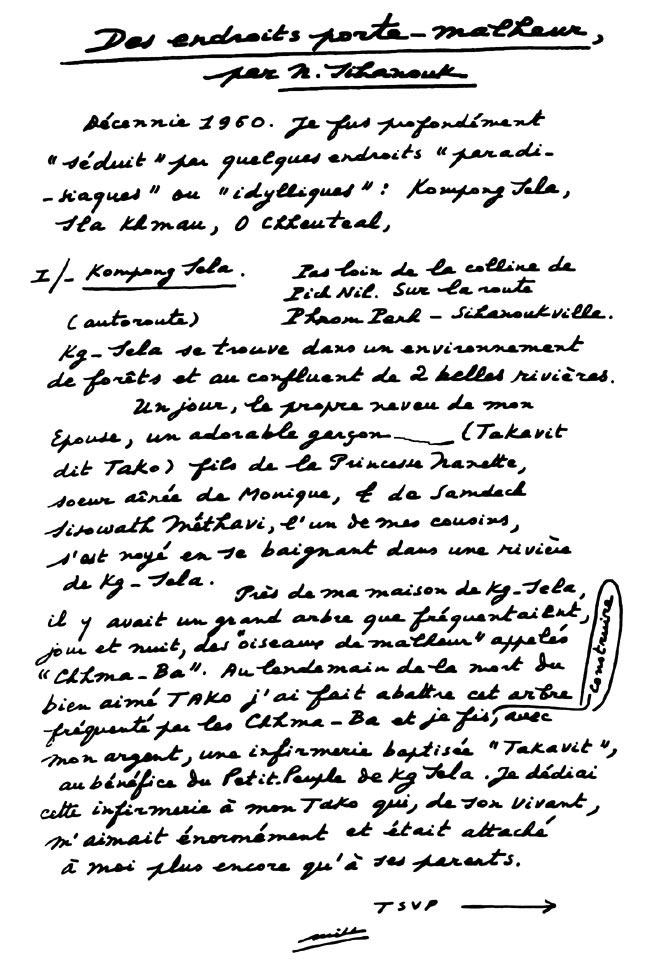 Des endroits porte-malheur,
par N. Sihanouk
Décennie 1960. Je fus profondément
"séduit" par quelques endroits "paradi-
-siaques" ou "idylliques" : Kompong Sela,
Sla Khmau, O Chheuteal,
I/- Kompong Sela. Pas loin de la colline de
Pich Nil. Sur la route
(autoroute) Phnom Penh - Sihanoukville.
Kg-Sela se trouve dans un environnement
de forêts et au confluent de 2 belles rivières.
Un jour, le propre neveu de mon
Epouse, un adorable garçon (Takavit
dit Tako) fils de la Princesse Nanette,
soeur aînée de Monique, & de Samdech
Sisowath Méthavi, l'un de mes cousins,
s'est noyé en se baignant dans une rivière
de Kg-Sela. Près de ma maison de Kg-Sela,
il y avait un grand arbre que fréquentaient,
jour et nuit, des "oiseaux de malheur" appelés
"Chhma-Ba". Au lendemain de la mort du
bien aimé TAKO j'ai fait abattre cet arbre
construire
fréquenté par les Chhma-Ba et je fis, avec
mon argent, une infirmerie baptisée "Takavit",
au bénéfice du Petit-Peuple de Kg Sela. Je dédiai
cette infirmerie à mon Tako qui, de son vivant,
m'aimait énormément et était attaché
à moi plus encore qu'à ses parents.
TSVP →